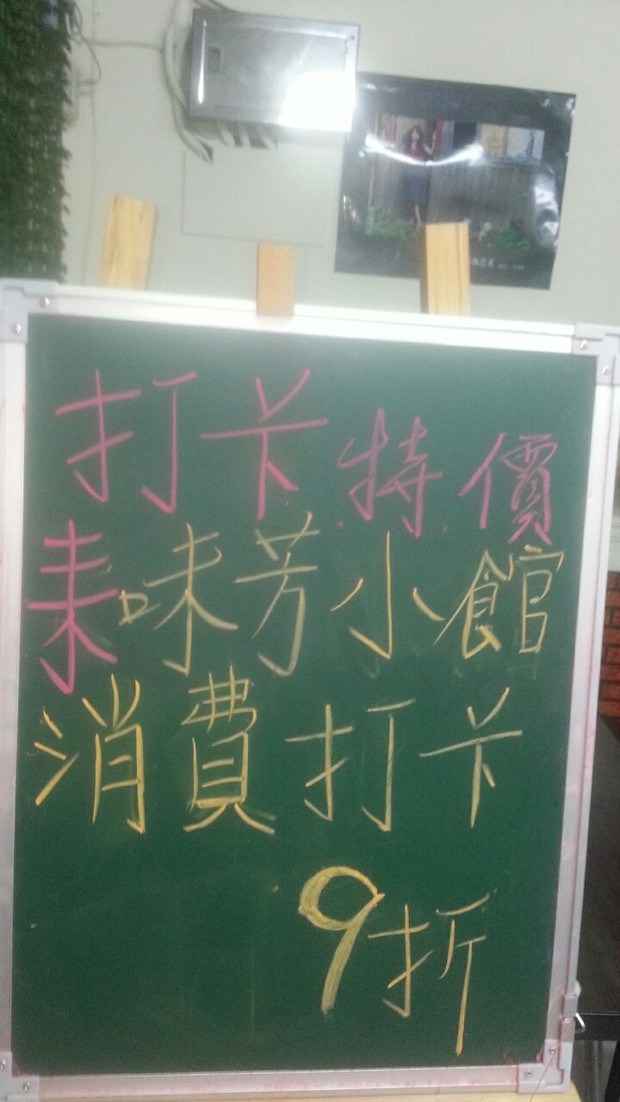 打卡特價
耒味芳小館
消費打卡
9折